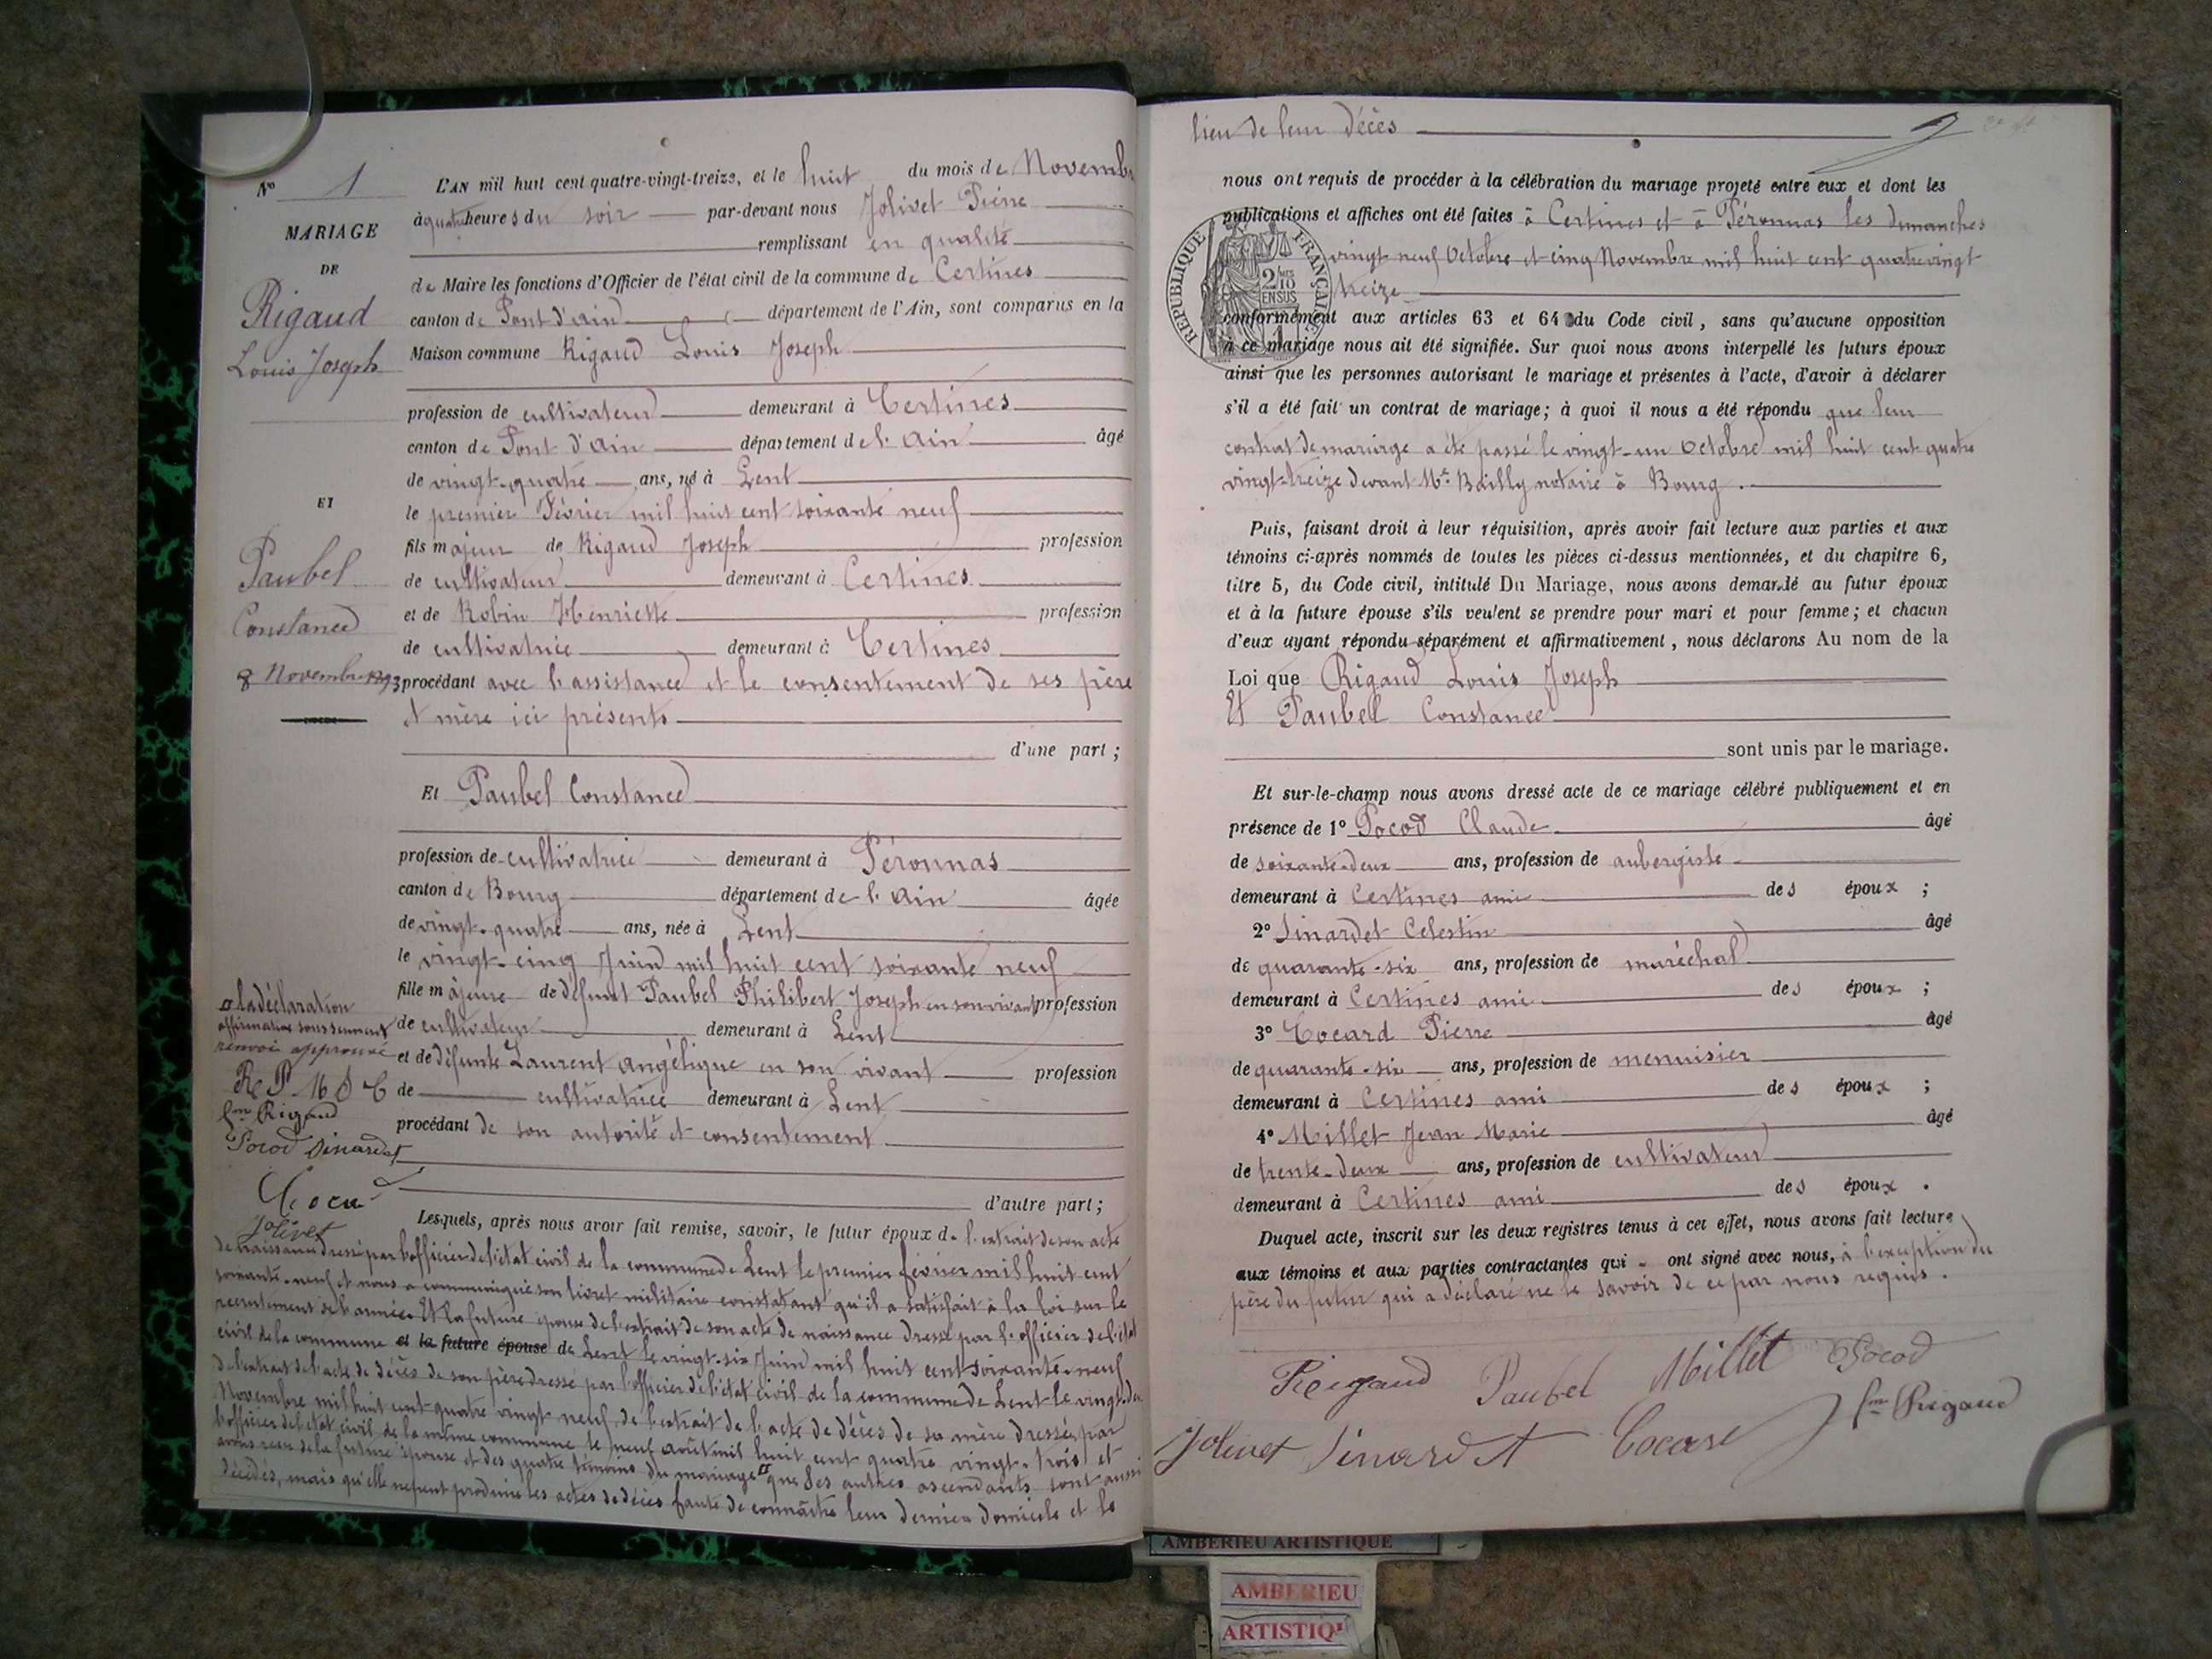 N° 1
MARIAGE
DE
Rigaud
Louis Joseph
ET
Paubel
Constance
8 Novembre 1893
L'AN mil huit cent quatre-vingt-treize, et le huit du mois de Novembre
à quatre heures du soir par-devant nous Jolivet Pierre
remplissant en qualité
de Maire les fonctions d'Officier de l'état civil de la commune de Certines
canton de Pont d'ain département de l'Ain, sont comparus en la
Maison commune Rigaud Louis Joseph
profession de cultivateur demeurant à Certines
canton de Pont d'ain département de l'ain âgé
de vingt-quatre ans, né à Lent
le premier Février mil huit cent soixante neuf
fils majeur de Rigaud Joseph profession
de cultivateur demeurant à Certines
et de Robin Henriette profession
de cultivatrice demeurant à Certines
procédant avec l'assistance et le consentement de ses père
et mère ici présents
d'une part ;
Et Paubel Constance
profession de cultivatrice demeurant à Péronnas
canton de Bourg département de l'ain âgée
de vingt-quatre ans, née à Lent
le vingt-cinq Juin mil huit cent soixante neuf
fille majeure de défunt Paubel Philibert Joseph en son vivant profession
de cultivateur demeurant à Lent
et de défunte Laurent angélique en son vivant profession
de cultivatrice demeurant à Lent
procédant de son autorité et consentement
d'autre part ;
la déclaration
affirmative sous serment
renvoi approuvé
R P M S C
fme Rigaud
Pocod Sinardet
Cocar
Jolivet
Lesquels, après nous avoir fait remise, savoir, le futur époux de l'extrait de son acte
de naissance dressé par l'officier de l'état civil de la commune de Lent le premier février mil huit cent
soixante-neuf et nous a communiqué son livret militaire constatant qu'il a satisfait à la loi sur le
recrutement de l'armée. Et la future épouse de l'extrait de son acte de naissance dressé par l'officier de l'état
civil de la commune et la future épouse de Lent le vingt-six Juin mil huit cent soixante-neuf
de l'extrait de l'acte de décès de son père dressé par l'officier de l'état civil de la commune de Lent le vingt-deux
Novembre mil huit cent quatre vingt neuf, de l'extrait de l'acte de décès de sa mère dressé par
l'officier de l'état civil de la même commune le neuf août mil huit cent quatre vingt-trois et
avons reçu de la future épouse et des quatre témoins du mariage que ses autres ascendants sont aussi
décédés, mais qu'elle ne peut produire les actes de décès faute de connaître leur dernier domicile et le
lieu de leur décès
nous ont requis de procéder à la célébration du mariage projeté entre eux et dont les
publications et affiches ont été faites à Certines et à Péronnas les dimanches
vingt neuf Octobre et cinq Novembre mil huit cent quatre vingt
treize
RÉPUBLIQUE FRANÇAISE
2/10 EN SUS
conformément aux articles 63 et 64 du Code civil, sans qu'aucune opposition
à ce mariage nous ait été signifiée. Sur quoi nous avons interpellé les futurs époux
ainsi que les personnes autorisant le mariage et présentes à l'acte, d'avoir à déclarer
s'il a été fait un contrat de mariage; à quoi il nous a été répondu que leur
contrat de mariage a été passé le vingt-un Octobre mil huit cent quatre
vingt-treize devant Me Bailly notaire à Bourg.
Puis, faisant droit à leur réquisition, après avoir fait lecture aux parties et aux
témoins ci-après nommés de toutes les pièces ci-dessus mentionnées, et du chapitre 6,
titre 5, du Code civil, intitulé Du Mariage, nous avons demandé au futur époux
et à la future épouse s'ils veulent se prendre pour mari et pour femme; et chacun
d'eux ayant répondu séparément et affirmativement, nous déclarons Au nom de la
Loi que Rigaud Louis Joseph
Et Paubel Constance
sont unis par le mariage.
Et sur-le-champ nous avons dressé acte de ce mariage célébré publiquement et en
présence de 1° Pocod Claude âgé
de soixante-deux ans, profession de aubergiste
demeurant à Certines ami des époux ;
2° Sinardet Célestin âgé
de quarante-six ans, profession de maréchal
demeurant à Certines ami des époux ;
3° Cocard Pierre âgé
de quarante-six ans, profession de menuisier
demeurant à Certines ami des époux ;
4° Millet Jean Marie âgé
de trente-deux ans, profession de cultivateur
demeurant à Certines ami des époux .
Duquel acte, inscrit sur les deux registres tenus à cet effet, nous avons fait lecture
aux témoins et aux parties contractantes qui ont signé avec nous, à l'exception du
père du futur qui a déclaré ne le savoir de ce par nous requis.
Rigaud Paubel Millet Pocod
Jolivet Sinardet Cocard fme Rigaud
AMBERIEU ARTISTIQUE
AMBERIEU
ARTISTIQU